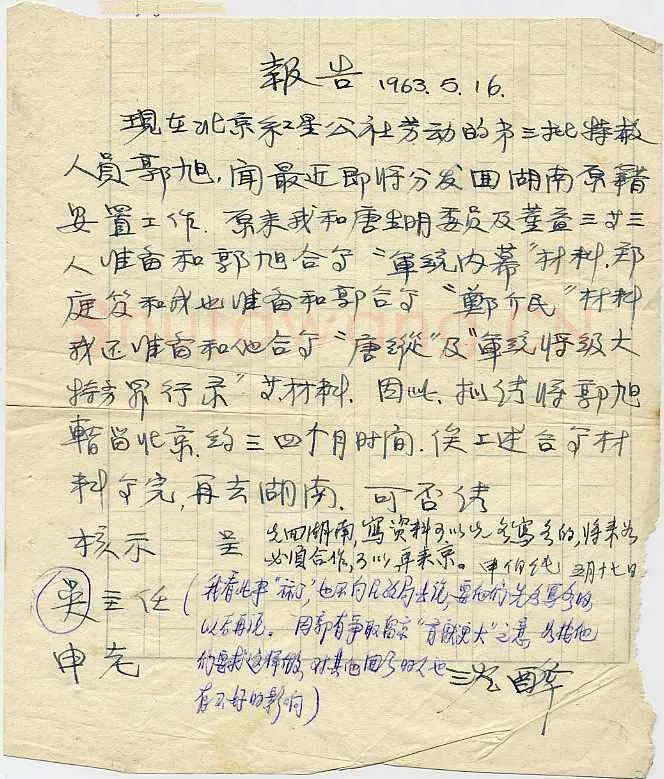 報告 1963.5.16.
現在北京紅星公社劳动的第三批特赦
人員郭旭,闻最近即将分发回湖南原籍
安置工作.原来我和唐生明委员及董益三艾三
人准备和郭旭合写“軍統内幕”材料.郑
庭笈和我也准备和郭合写“鄭介民”材料
我还准备和他合写“唐縱”及“軍統将级大
特务罪行录”材料.因此,拟请将郭旭
暫留北京,约三四个月时间.俟上述合写材
料写完,再去湖南.可否请
核示 呈
先回湖南,寫資料可以先各寫各的,将来如
必須合作,可以再来京。申伯纯 五月十七日
吴主任
申老
(我看此事“算了”,也不向民政局去说,要他们先各寫各的
以后再说。因郭有争取留京“有餘更大”之意 如按他
们要求这样做,对其他回乡的人也
有不好的影响)
沈醉